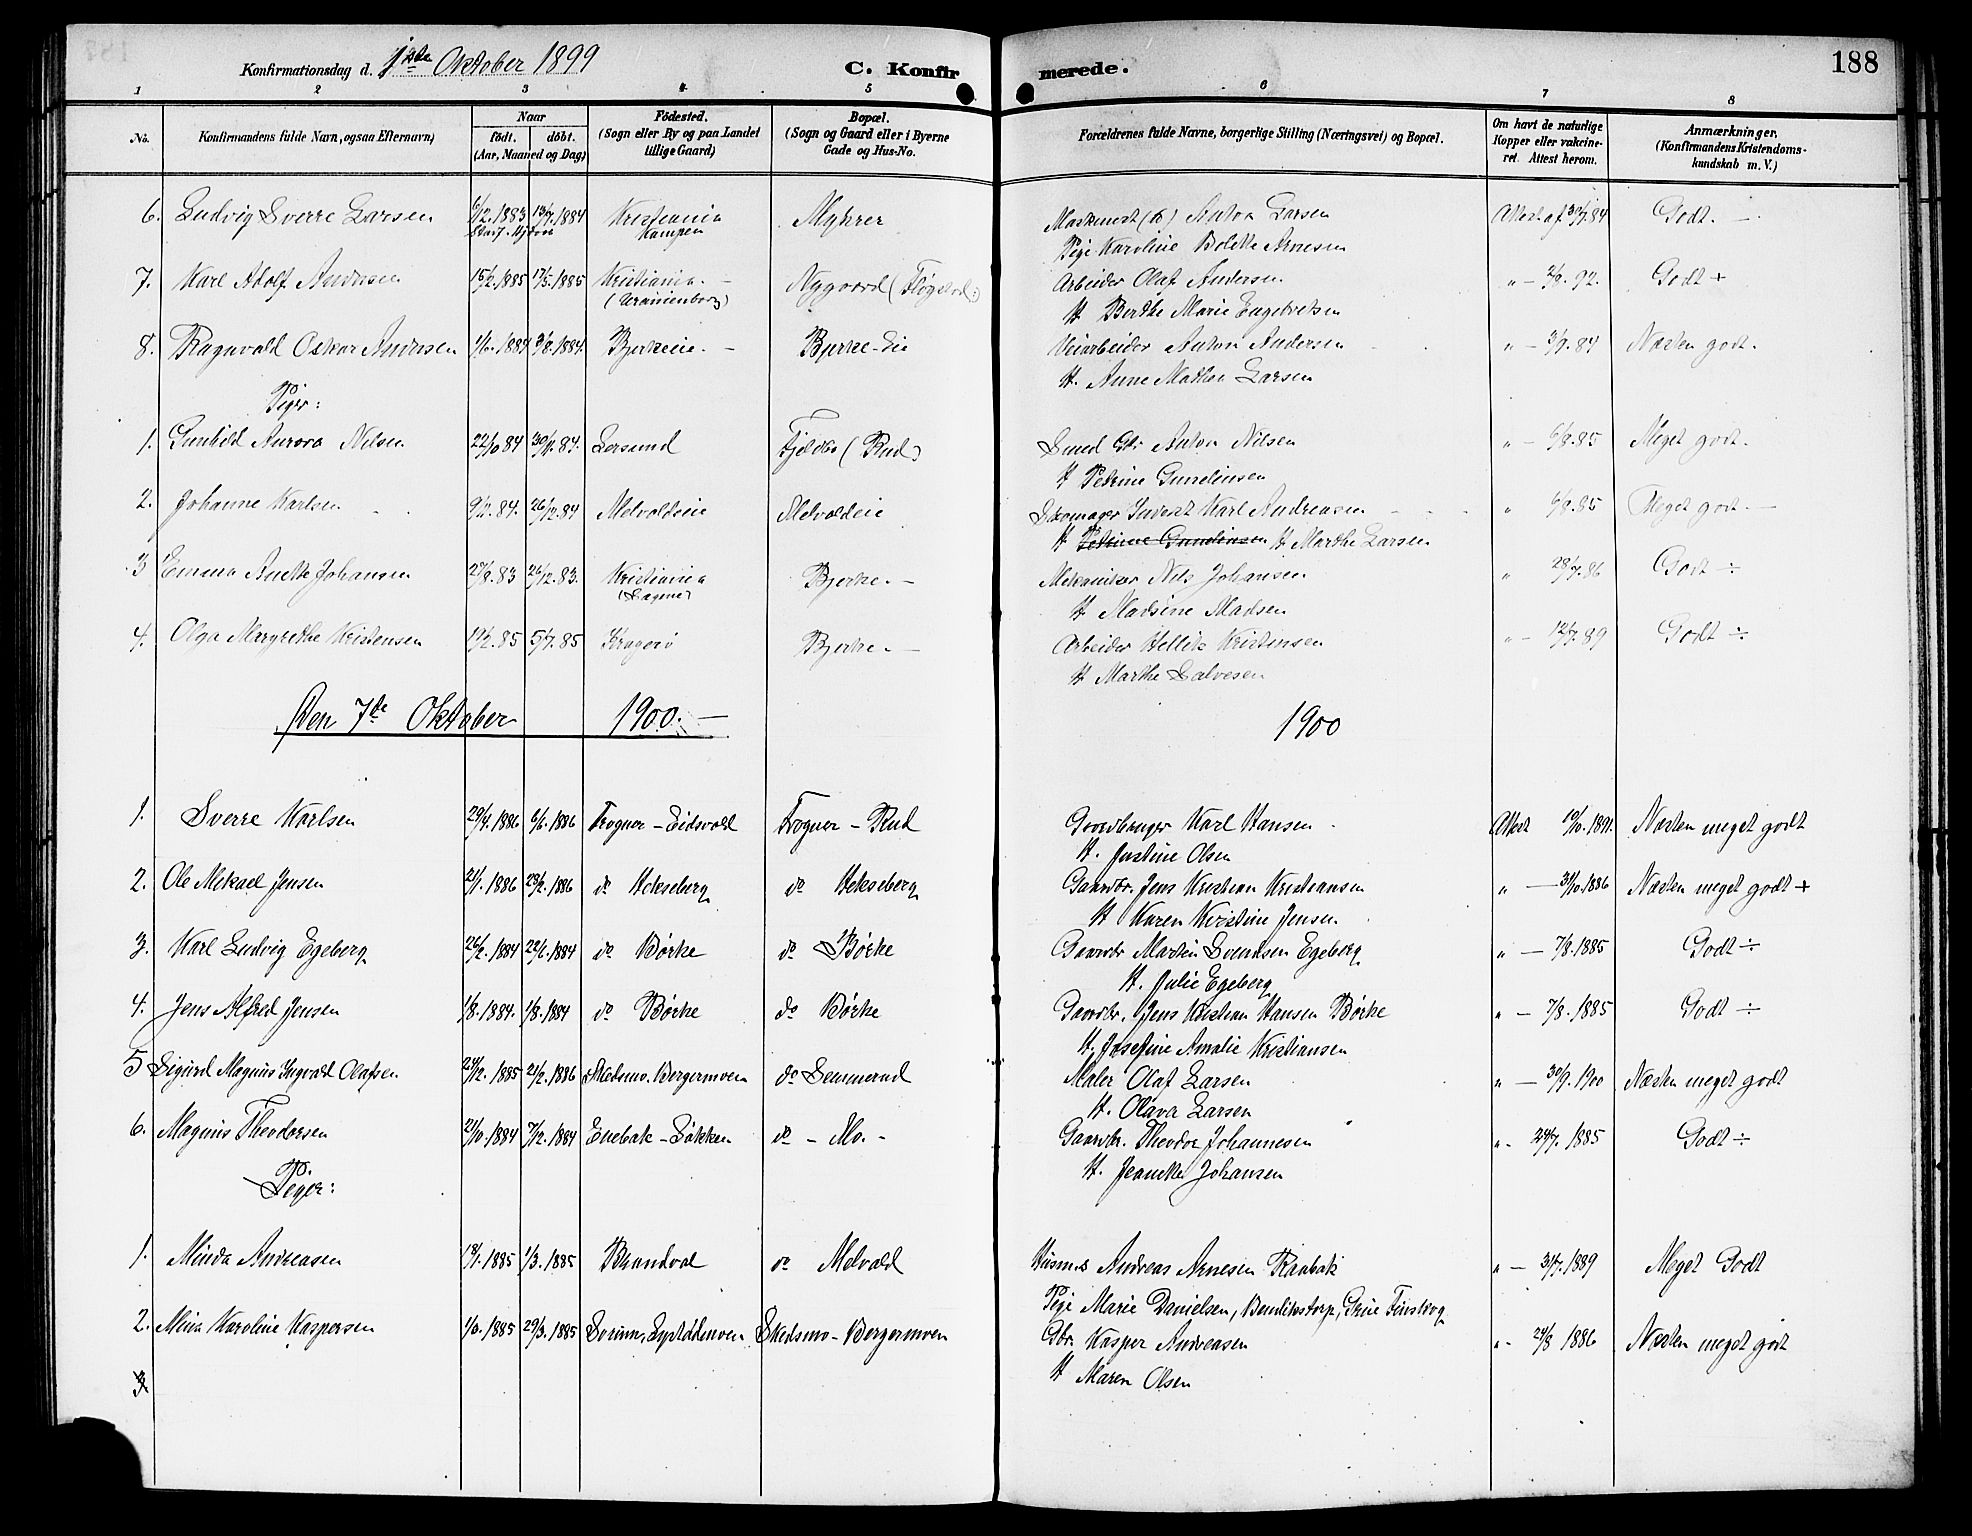 188
Konfirmationsdag d. 1ste Oktober 1899 C. Konfirmerede.
1 2 3 4 5 6 7 8
No. Konfirmandens fulde Navn, ogsaa Efternavn) Naar født. døbt. (Aar, Maaned og Dag) Fødested. (Sogn eller By og paa Landet tillige Gaard) Bopæl. (Sogn og Gaard eller i Byerne Gade og Hus-No. Forældrenes fulde Navne, borgerlige Stilling (Næringsvei) og Bopæl. Om havt de naturlige Kopper eller vakcineret. Attest herom. Anmærkninger. (Konfirmandens Kristendomskundskab m. V.)
6. Ludvig Sverre Larsen 6/12.1883 13/7.1884 Kristiania Kampen Myhrer Maskinest (k) Anton Larsen Attest af 30/7.84 Godt. -
Pige Karoline Bolette Arnesen
7. Karl Adolf Andersen 15/2.1885 17/5.1885 Kristiania. - (Uranienborg) Nygaard (Fløgstad) Arbeider Olaf Andersen " - 2/9.92. Godt +
H Berthe Marie Engebretsen
8. Ragnvald Oskar Andersen 1/6.1884 3/8.1884. Bjerkeeie. - Bjerke-Eie Veiarbeider Anton Andersen " - 3/9.84 Næsten godt.
H. Anne Mathea Larsen
Piger:
1. Gunhild Aurora Nilsen 22/10 84 30/11.84. Sørsund Fjeldbo (Rud) Smed Anton Nilsen " - 6/8.85 Meget godt.
H Petrine Gundersen
2. Johanne Karlsen 9/11.84. 26/12.84 Melvoldeie Melvoldeie Skomager Indvest Karl Andreasen " 6/8.85 Meget godt. -
H Petrine Gundersen H Marthe Larsen
3 Emma Anette Johansen 27/8.83 26/12.83. Kristiania (Sagene) Bjerke. - Mekaniker Nils Johansen " 28/7.86 Godt ÷
H Madsine Madsen
4. Olga Margrethe Kristensen 19/2.85 5/7.85 Kragerø Bjerke. - Arbeider Hellik Kristensen " - 12/7.89 Godt ÷
H Marthe Salvesen
Den 7de Oktober 1900. - 1900
1. Sverre Karlsen 29/4.1886 6/6.1886 Frogner - Eidsvold Frogner - Rud Gaardbruger Karl Hansen Attest 19/10.1891. Næsten meget godt
H. Justine Olsen
2. Ole Mikael Jensen 21/1.1886 28/2.1886 do Hekseberg do Hekseberg Gaardbr. Jens Kristian Kristiansen " - 31/10.1886 Næsten meget godt +
H Karen Kristine Jensen
3. Karl Ludvig Egeberg 26/2.1884 22/6.1884 do Børke do Børke Gaardbr Martin Svendsen Egeberg " - 7/8.1885 Godt ÷
H. Julie Egeberg
4. Jens Alfred Jensen 1/8.1884. 1/8.1884 do Børke do Børke Gaardbr. Jens Kristian Hansen Børke " - 7/8.1885 Godt ÷
H. Josefine Amalie Kristiansen
5 Sigurd Magnus Ingvald Olafsen 29/12.1885 21/2.1886 Skedsmo. Bergermoen do Lemmerud Maler Olaf Larsen " - 30/9.1900 Næsten meget godt
H. Olava Larsen
6. Magnus Theodorsen 21/10.1884 7/12.1884 Enebak - Løkken do - Mo. - Gaardbr. Theodor Johannesen " - 24/7.1885 Godt ÷
H. Jeanette Johansen
Piger:
1. Minda Andreasen 18/1.1885 1/3.1885 Brandval do Melvald Husmd Andreas Arnesen Raabæk " - 31/7.1889 Meget Godt
Pige Marie Danielsen, Bendikstorp, Grue Finskog
2. Mina Karoline Kaspersen 1/3.1885 29/3.1885 Sørum, Lystødmoen Skedsmo - Bergermoen Gbr. Kasper Andreasen " - 24/8 1886 Næsten meget godt
H Maren Olsen
3